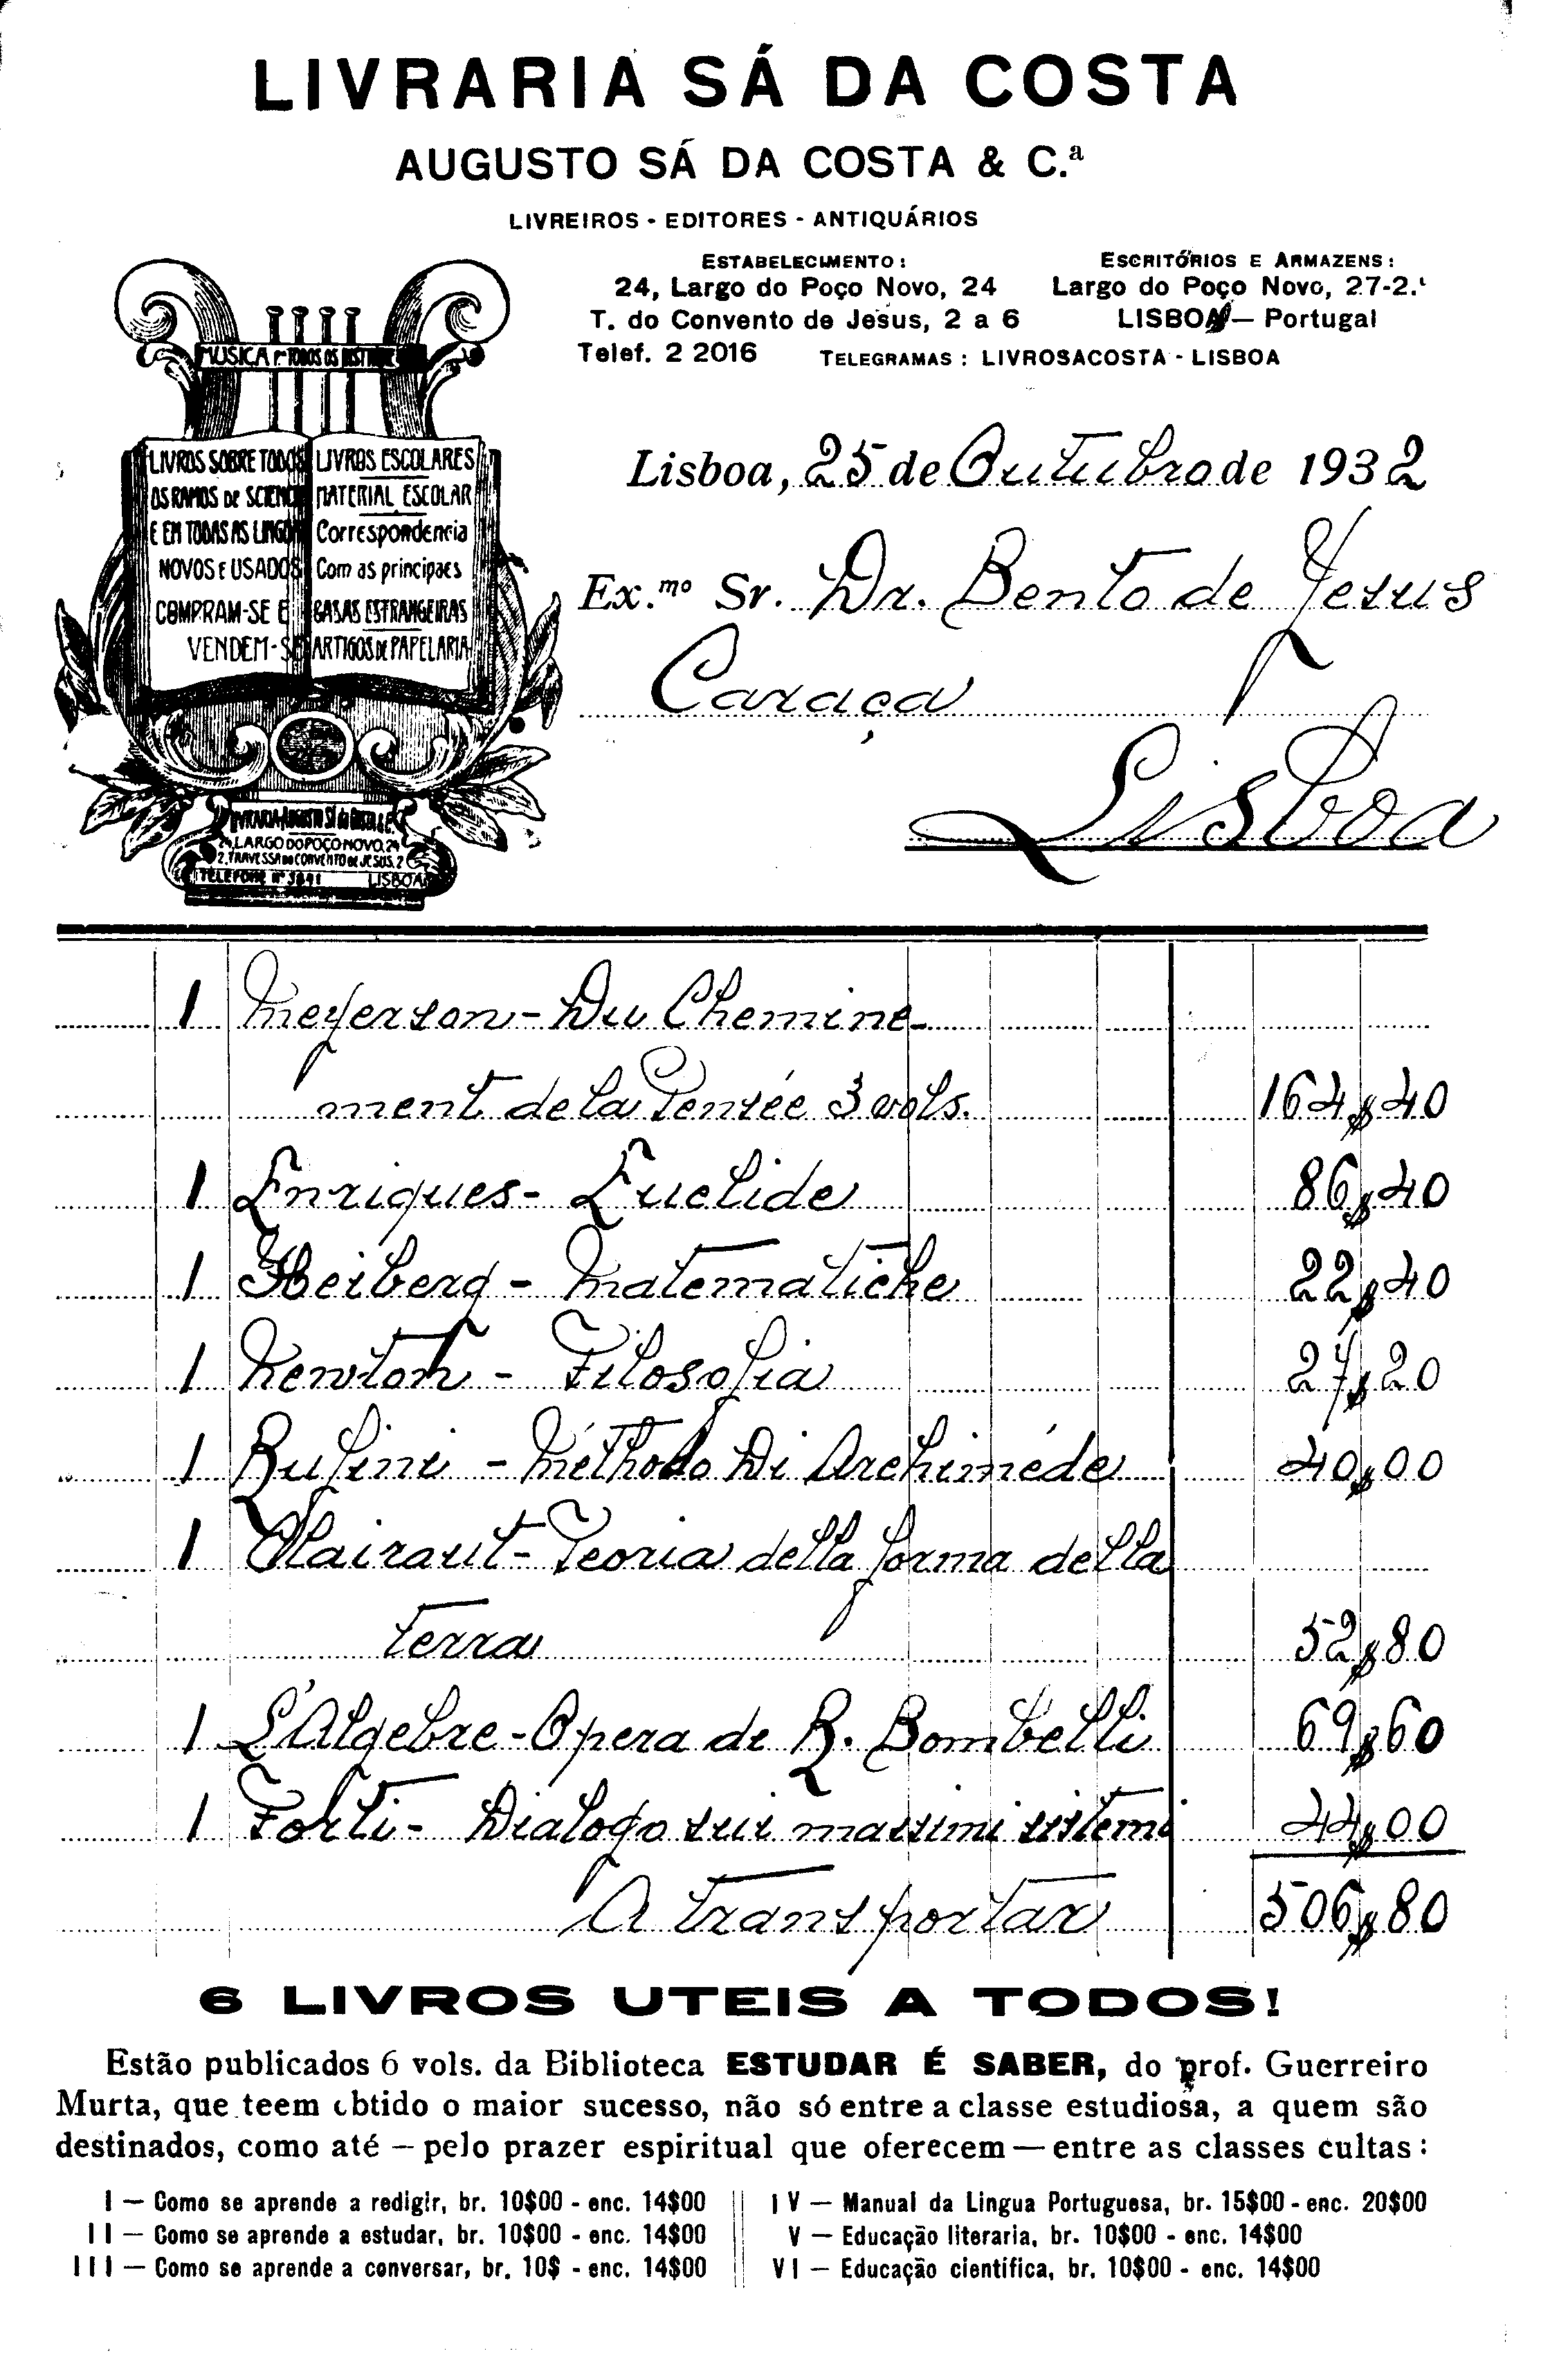 LIVRARIA SÁ DA COSTA
AUGUSTO SÁ DA COSTA & C.ª
LIVREIROS - EDITORES - ANTIQUÁRIOS
ESTABELECIMENTO:
24, Largo do Poço Novo, 24
T. do Convento de Jesus, 2 a 6
Telef. 2 2016
ESCRITÓRIOS E ARMAZENS:
Largo do Poço Novo, 27-2.º
LISBOA — Portugal
TELEGRAMAS: LIVROSACOSTA - LISBOA
MUSICA PARA TODOS OS
LIVROS SOBRE TODOS
OS RAMOS DE SCIENCIA
E EM TODAS AS LINGUAS
NOVOS E USADOS
COMPRAM-SE E
VENDEM-SE
LIVROS ESCOLARES
MATERIAL ESCOLAR
Correspondencia
Com as principaes
CASAS ESTRANGEIRAS
ARTIGOS DE PAPELARIA
LIVRARIA AUGUSTO SÁ da COSTA
24, LARGO DO POÇO NOVO, 24
2, TRAVESSA DO CONVENTO DE JESUS, 2
TELEFONE Nº LISBOA
Lisboa, 25 de Outubro de 1932
Ex.mo Sr. Dr. Bento de Jesus
Caraça
Lisboa
1 Meyerson - Du Chemine-
ment de la Pensée 3 vols. 164$40
1 Enriques - Euclide 86$40
1 Heiberg - Matematiche 22$40
1 Newton - Filosofia 27$20
1 Rufini - Méthodo Di Archiméde 40$00
1 Clairaut - Teoria della forma della
terra 52$80
1 L'Algebre - Opera de R. Bombelli 69$60
1 Forti - Dialogo sui massimi sistemi 44$00
A transportar 506$80
6 LIVROS UTEIS A TODOS!
Estão publicados 6 vols. da Biblioteca ESTUDAR É SABER, do prof. Guerreiro
Murta, que teem obtido o maior sucesso, não só entre a classe estudiosa, a quem são
destinados, como até — pelo prazer espiritual que oferecem — entre as classes cultas:
I — Como se aprende a redigir, br. 10$00 - enc. 14$00
II — Como se aprende a estudar, br. 10$00 - enc. 14$00
III — Como se aprende a conversar, br. 10$ - enc. 14$00
IV — Manual da Lingua Portuguesa, br. 15$00 - enc. 20$00
V — Educação literaria, br. 10$00 - enc. 14$00
VI — Educação cientifica, br. 10$00 - enc. 14$00